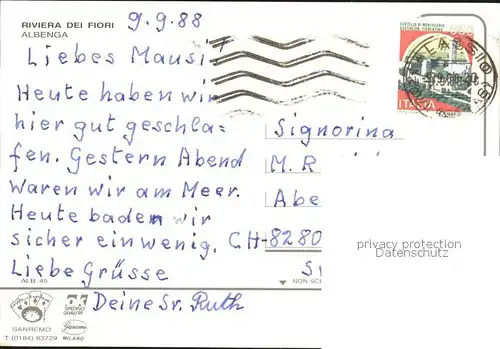 RIVIERA DEI FIORI
ALBENGA
9.9.88
Liebes Mausi
Heute haben wir
hier gut geschla-
fen. Gestern Abend
Waren wir am Meer.
Heute baden wir
sicher ein wenig.
Liebe Grüsse
Deine Sr. Ruth
ITALIA
Signorina
M. R
Abe
CH-8280
privacy protection
Datenschutz
ALB. 45
NON SC
SANREMO
T. (0184) 83729
MILANO